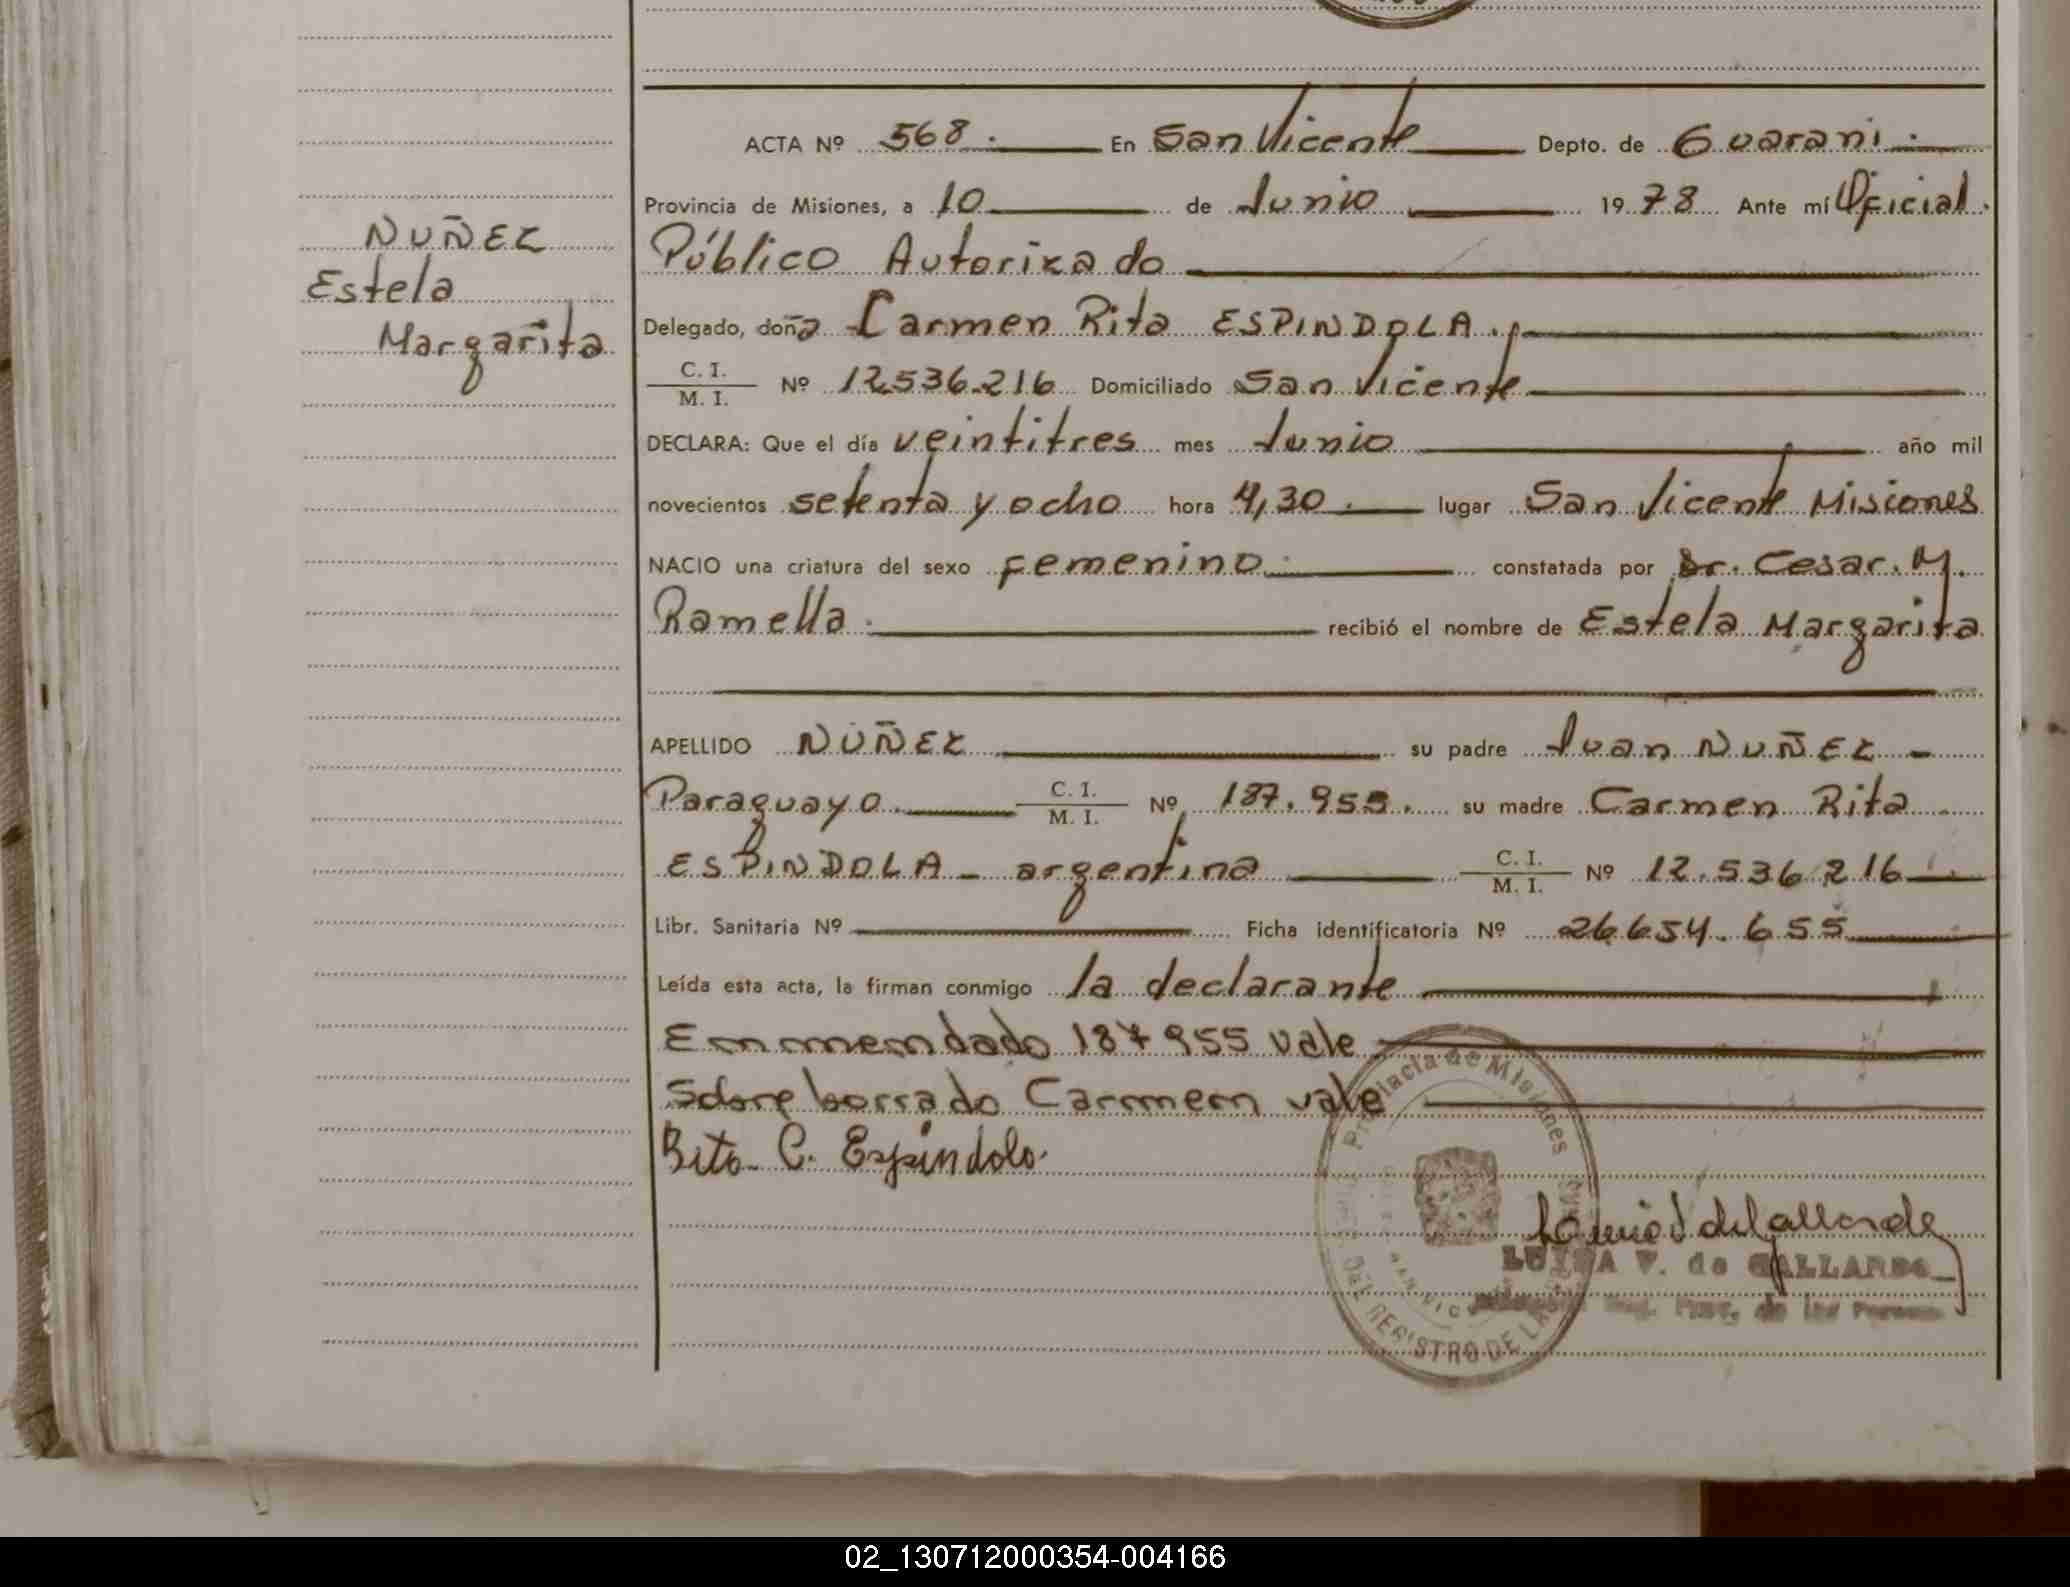 ACTA Nº 568. En San Vicente Depto. de Guarani.
Provincia de Misiones, a 10 de Junio 1978 Ante mí Oficial
Público Autorizado
Delegado, doña Carmen Rita ESPINDOLA.
C. I.
M. I. Nº 12.536.216 Domiciliado San Vicente
DECLARA: Que el día veintitres mes Junio año mil
novecientos setenta y ocho hora 4,30. lugar San Vicente Misiones
NACIO una criatura del sexo femenino. constatada por Dr. Cesar. M.
Ramella. recibió el nombre de Estela Margarita
APELLIDO NUÑEZ su padre Juan NUÑEZ -
Paraguayo. C. I.
M. I. Nº 187.955. su madre Carmen Rita
ESPINDOLA - argentina C. I.
M. I. Nº 12.536.216
Libr. Sanitaria Nº Ficha identificatoria Nº 26.654.655
Leída esta acta, la firman conmigo la declarante
Enmendado 187955 vale
Sobre borrado Carmen vale
Rita C. Espindola
NUÑEZ
Estela
Margarita
Provincia de Misiones
REGISTRO DE LA
LUISA V. de GALLARDO
02_130712000354-004166